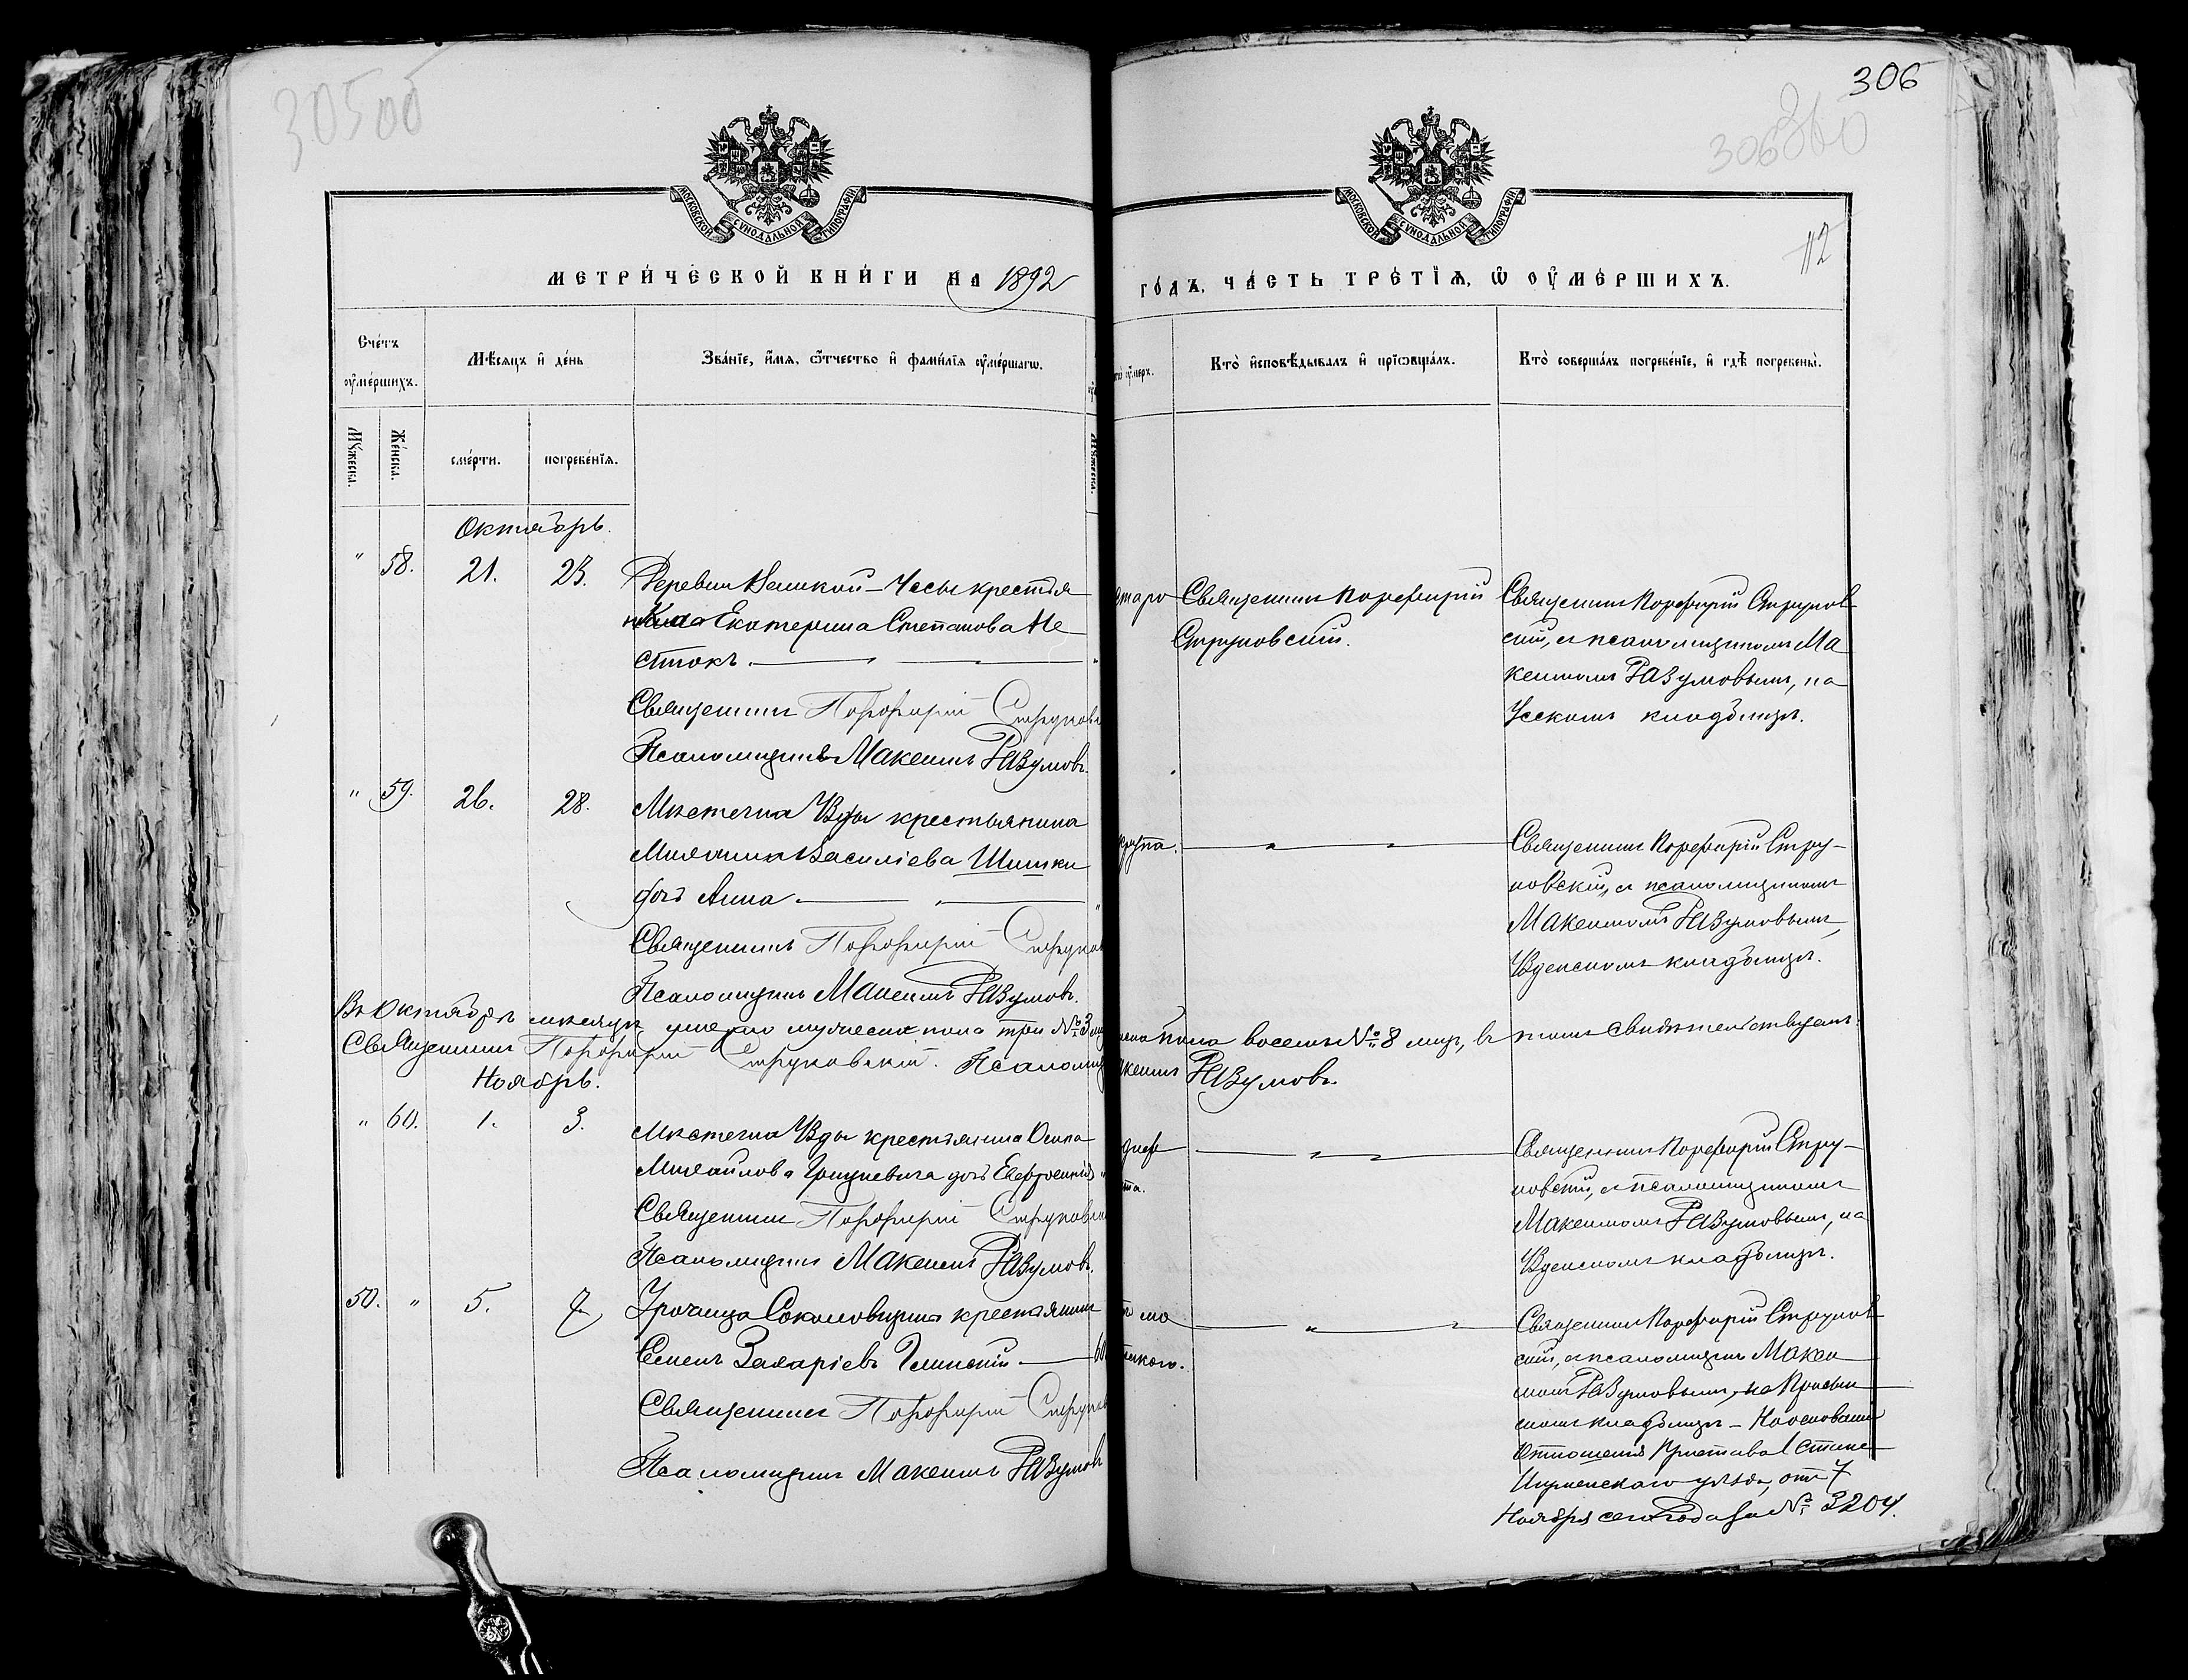 305об
306
306
112
МОСКОВСКОЙ СУНОДАЛЬНОЙ ТИПОГРАФІИ
МОСКОВСКОЙ СУНОДАЛЬНОЙ ТИПОГРАФІИ
МЕТРИ́ЧЕСКОЙ КНИ́ГИ НА 1892
ГО́ДЪ, ЧА́СТЬ ТРЕ́ТІѦ, Ѡ ОУ҆МЕ́РШИХЪ.
Сче́тъ оу҆ме́ршихъ.
Мѣ́сяцъ и҆ де́нь
Зва́нїе, и҆́мѧ, ѻ҆́тчество и҆ фами́лїѧ оу҆ме́ршагѡ.
Кто̀ и҆сповѣ́дывалъ и҆ прїѡбща́лъ.
Кто̀ соверша́лъ погребе́нїе, и҆ гдѣ̀ погребены̀.
Му́жеска.
Же́нска.
сме́рти.
погребе́нїѧ.
Октябрь.
" 58. 21. 23.
Деревни Великой-Чесы крестья
Екатерина Степанова Не
стокъ.
Священникъ Порфирій Струковс
Псаломщикъ Максимъ Разумовъ.
старо
Священникъ Порфирій
Струковскій.
Священникъ Порфирій Струков
скій, съ псаломщикомъ Ма
ксимомъ Разумовымъ, на
Усскомъ кладбищѣ.
" 59. 26. 28.
Мѣстечка Узды крестьянина
Василіева Шишки
дочь Анна
Священникъ Порфирій Струков
Псаломщикъ Максимъ Разумовъ.
крупа.
Священникъ Порфирій Стру-
ковскій, съ псаломщикомъ
Максимомъ Разумовымъ,
Узденскомъ кладбищѣ.
Въ Октябрѣ мѣсяцѣ умерло мужеска пола три №3 пола восемь №8 лицъ, въ томъ свидѣтельствуемъ:
Священникъ Порфирій Струковскій. Псаломщ ксимъ Разумовъ.
Ноябрь.
" 60. 1. 3.
Мѣстечка Узды крестьянина Осипа
Михайлова Грицкевича дочь Евфросинія
Священникъ Порфирій Струковскі
Псаломщикъ Максимъ Разумовъ.
диф
та.
Священникъ Порфирій Стру-
ковскій, съ псаломщикомъ
Максимомъ Разумовымъ, на
Узденскомъ кладбищѣ.
50. " 5. 7
Урочища Соколовщина крестьянинъ
Семенъ Захаріевъ Глинскій 60
Священникъ Порфирій Струков
Псаломщикъ Максимъ Разумов
Священникъ Порфирій Струков
скій, съ псаломщик Макси
момъ Разумовымъ, на
кладбищѣ - На основаніи
Отношенія Пристава 1 Стана
Игуменскаго уѣзда, отъ 7
Ноября сего года за № 3204.